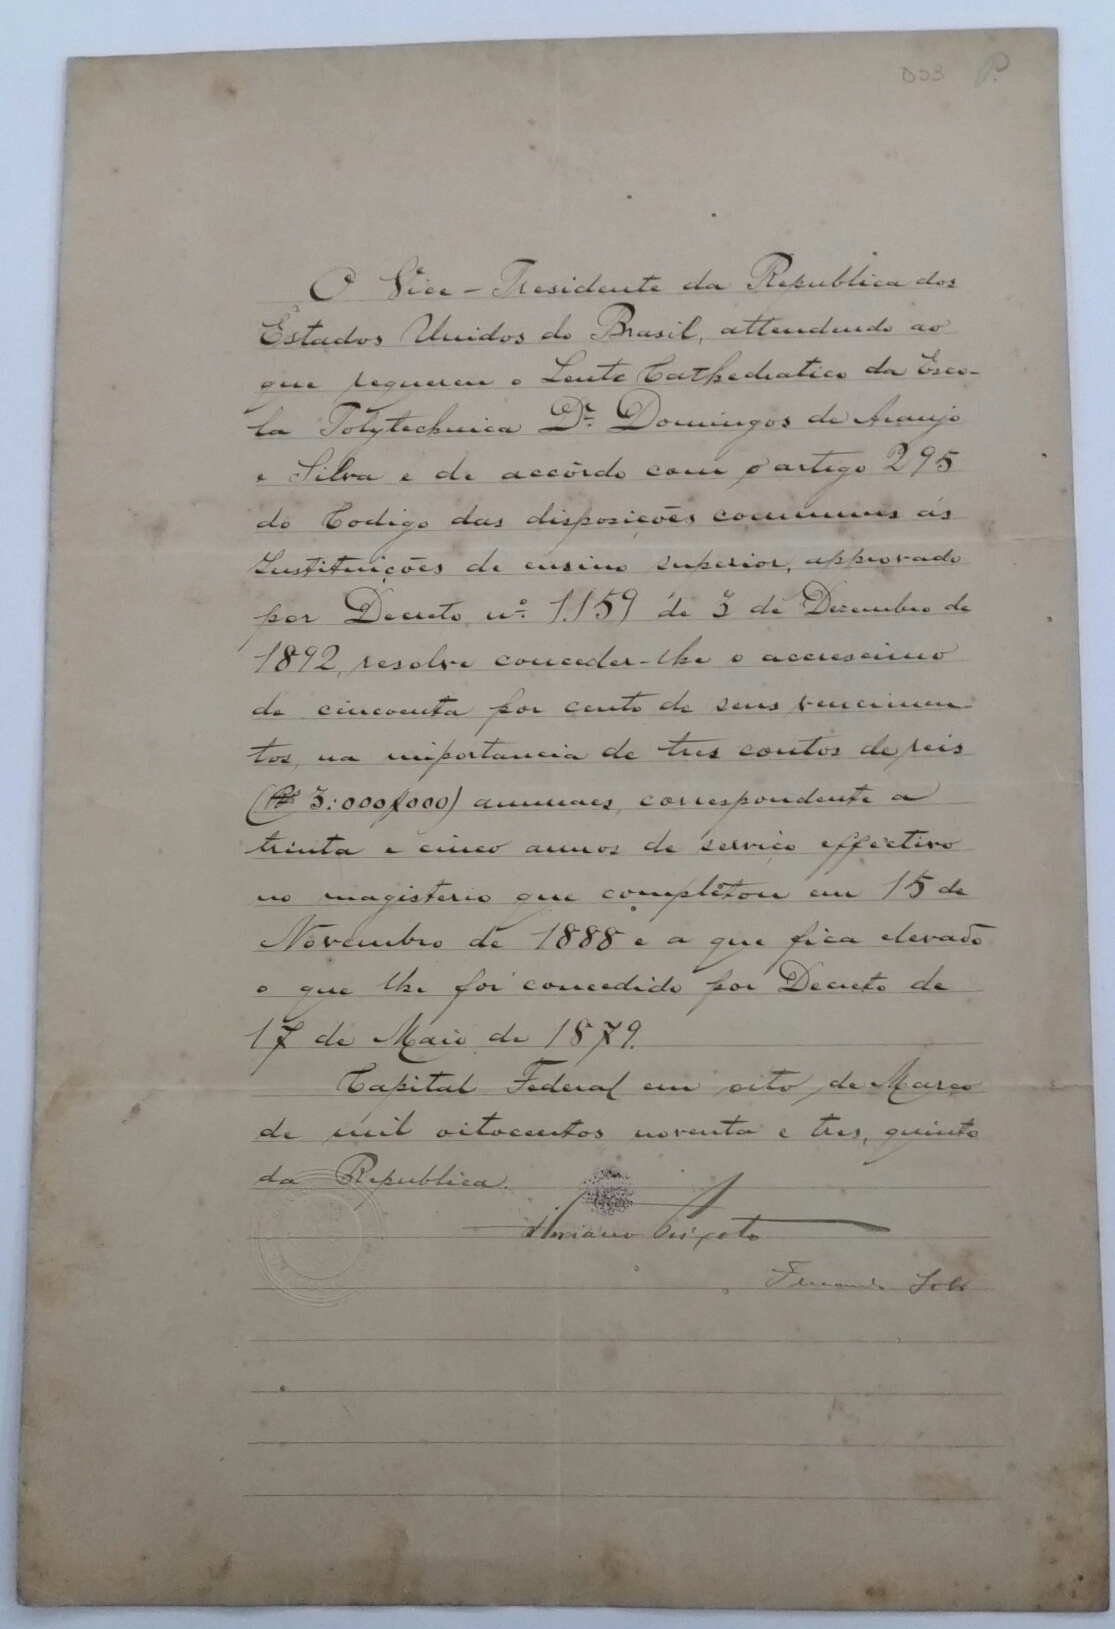 D33 P.
O Vice-Presidente da Republica dos
Estados Unidos do Brasil, attendendo ao
que requereu o Lente Cathedratico da Esco-
la Polytechnica Dr. Domingos de Araujo
e Silva e de accôrdo com o artigo 295
do Codigo das disposições communs ás
Instituições de ensino superior, approvado
por Decreto nº 1.159 de 3 de Dezembro de
1892, resolve conceder-lhe o accrescimo
de cincoenta por cento de seus vencimen-
tos, na importancia de tres contos de reis
(Rs 3:000$000) annuaes, correspondente a
trinta e cinco annos de serviço effectivo
no magisterio que completou em 15 de
Novembro de 1888 e a que fica elevado
o que lhe foi concedido por Decreto de
17 de Maio de 1879.
Capital Federal em oito de Março
de mil oitocentos noventa e tres, quinto
da Republica.
Floriano Peixoto
Fernando Lobo